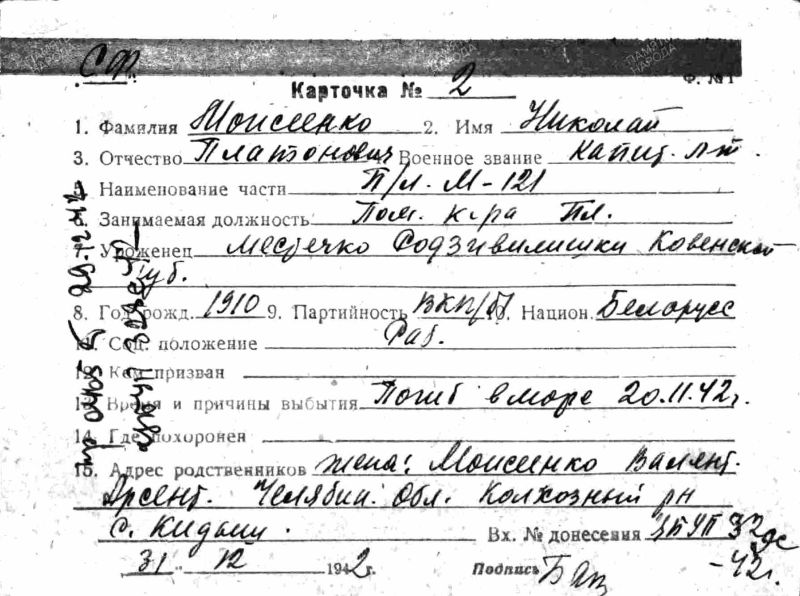 С.Ф.
Ф. №1
Карточка № 2
1. Фамилия Моисеенко 2. Имя Николай
3. Отчество Платонович Военное звание Капит. л-т.
Наименование части П/л. М-121
Занимаемая должность Пом. к-ра Пл.
Уроженец местечко Содзивилишки Ковенской
губ.
8. Год рожд. 1910 9. Партийность ВКП/б/ Национ. Белорусс
11. Соц. положение Раб.
12. Кем призван
13. Время и причины выбытия Погиб в море 20.11.42 г.
14. Где похоронен
15. Адрес родственников жена: Моисеенко Валент.
Арсент. Челябин. обл. Колхозный рн
с. Кидыш.
Вх. № донесения
31 12 1942 г. Подпись
-42 г.
29.12.42
ПАМЯТЬ НАРОДА
ПАМЯТЬ НАРОДА